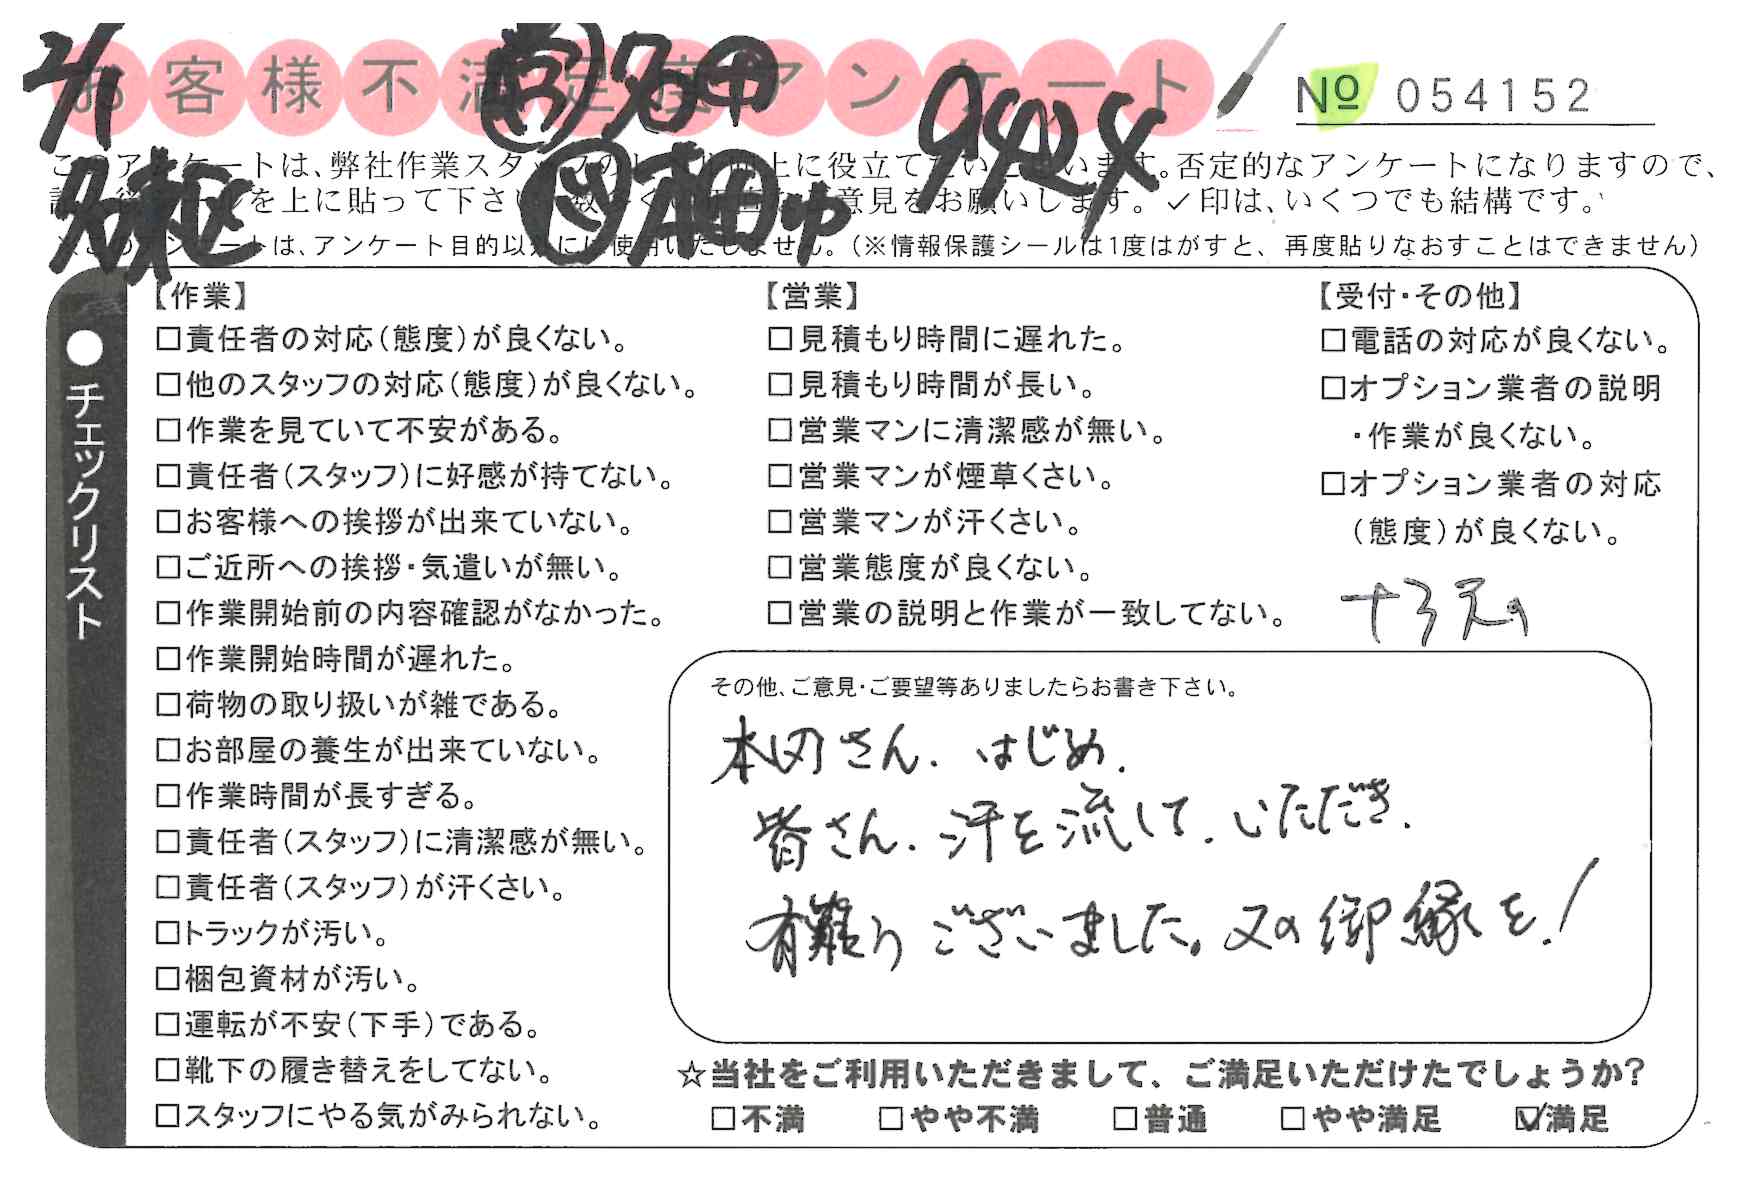 2/1
お客様不満足度アンケート
9424
№ 054152
このアンケートは、弊社作業スタッフのレベル向上に役立てたいと思います。否定的なアンケートになりますので、
を上に貼って下さい 意見をお願いします。✓印は、いくつでも結構です。
※このアンケートは、アンケート目的以外には使用いたしません。(※情報保護シールは1度はがすと、再度貼りなおすことはできません)
●チェックリスト
【作業】
□責任者の対応(態度)が良くない。
□他のスタッフの対応(態度)が良くない。
□作業を見ていて不安がある。
□責任者(スタッフ)に好感が持てない。
□お客様への挨拶が出来ていない。
□ご近所への挨拶・気遣いが無い。
□作業開始前の内容確認がなかった。
□作業開始時間が遅れた。
□荷物の取り扱いが雑である。
□お部屋の養生が出来ていない。
□作業時間が長すぎる。
□責任者(スタッフ)に清潔感が無い。
□責任者(スタッフ)が汗くさい。
□トラックが汚い。
□梱包資材が汚い。
□運転が不安(下手)である。
□靴下の履き替えをしてない。
□スタッフにやる気がみられない。
【営業】
□見積もり時間に遅れた。
□見積もり時間が長い。
□営業マンに清潔感が無い。
□営業マンが煙草くさい。
□営業マンが汗くさい。
□営業態度が良くない。
□営業の説明と作業が一致してない。
【受付・その他】
□電話の対応が良くない。
□オプション業者の説明
・作業が良くない。
□オプション業者の対応
(態度)が良くない。
その他、ご意見・ご要望等ありましたらお書き下さい。
本田さん、はじめ、
皆さん、汗を流して、いただき、
有難うございました。又の御縁を!
☆当社をご利用いただきまして、ご満足いただけたでしょうか?
□不満 □やや不満 □普通 □やや満足 ☑満足